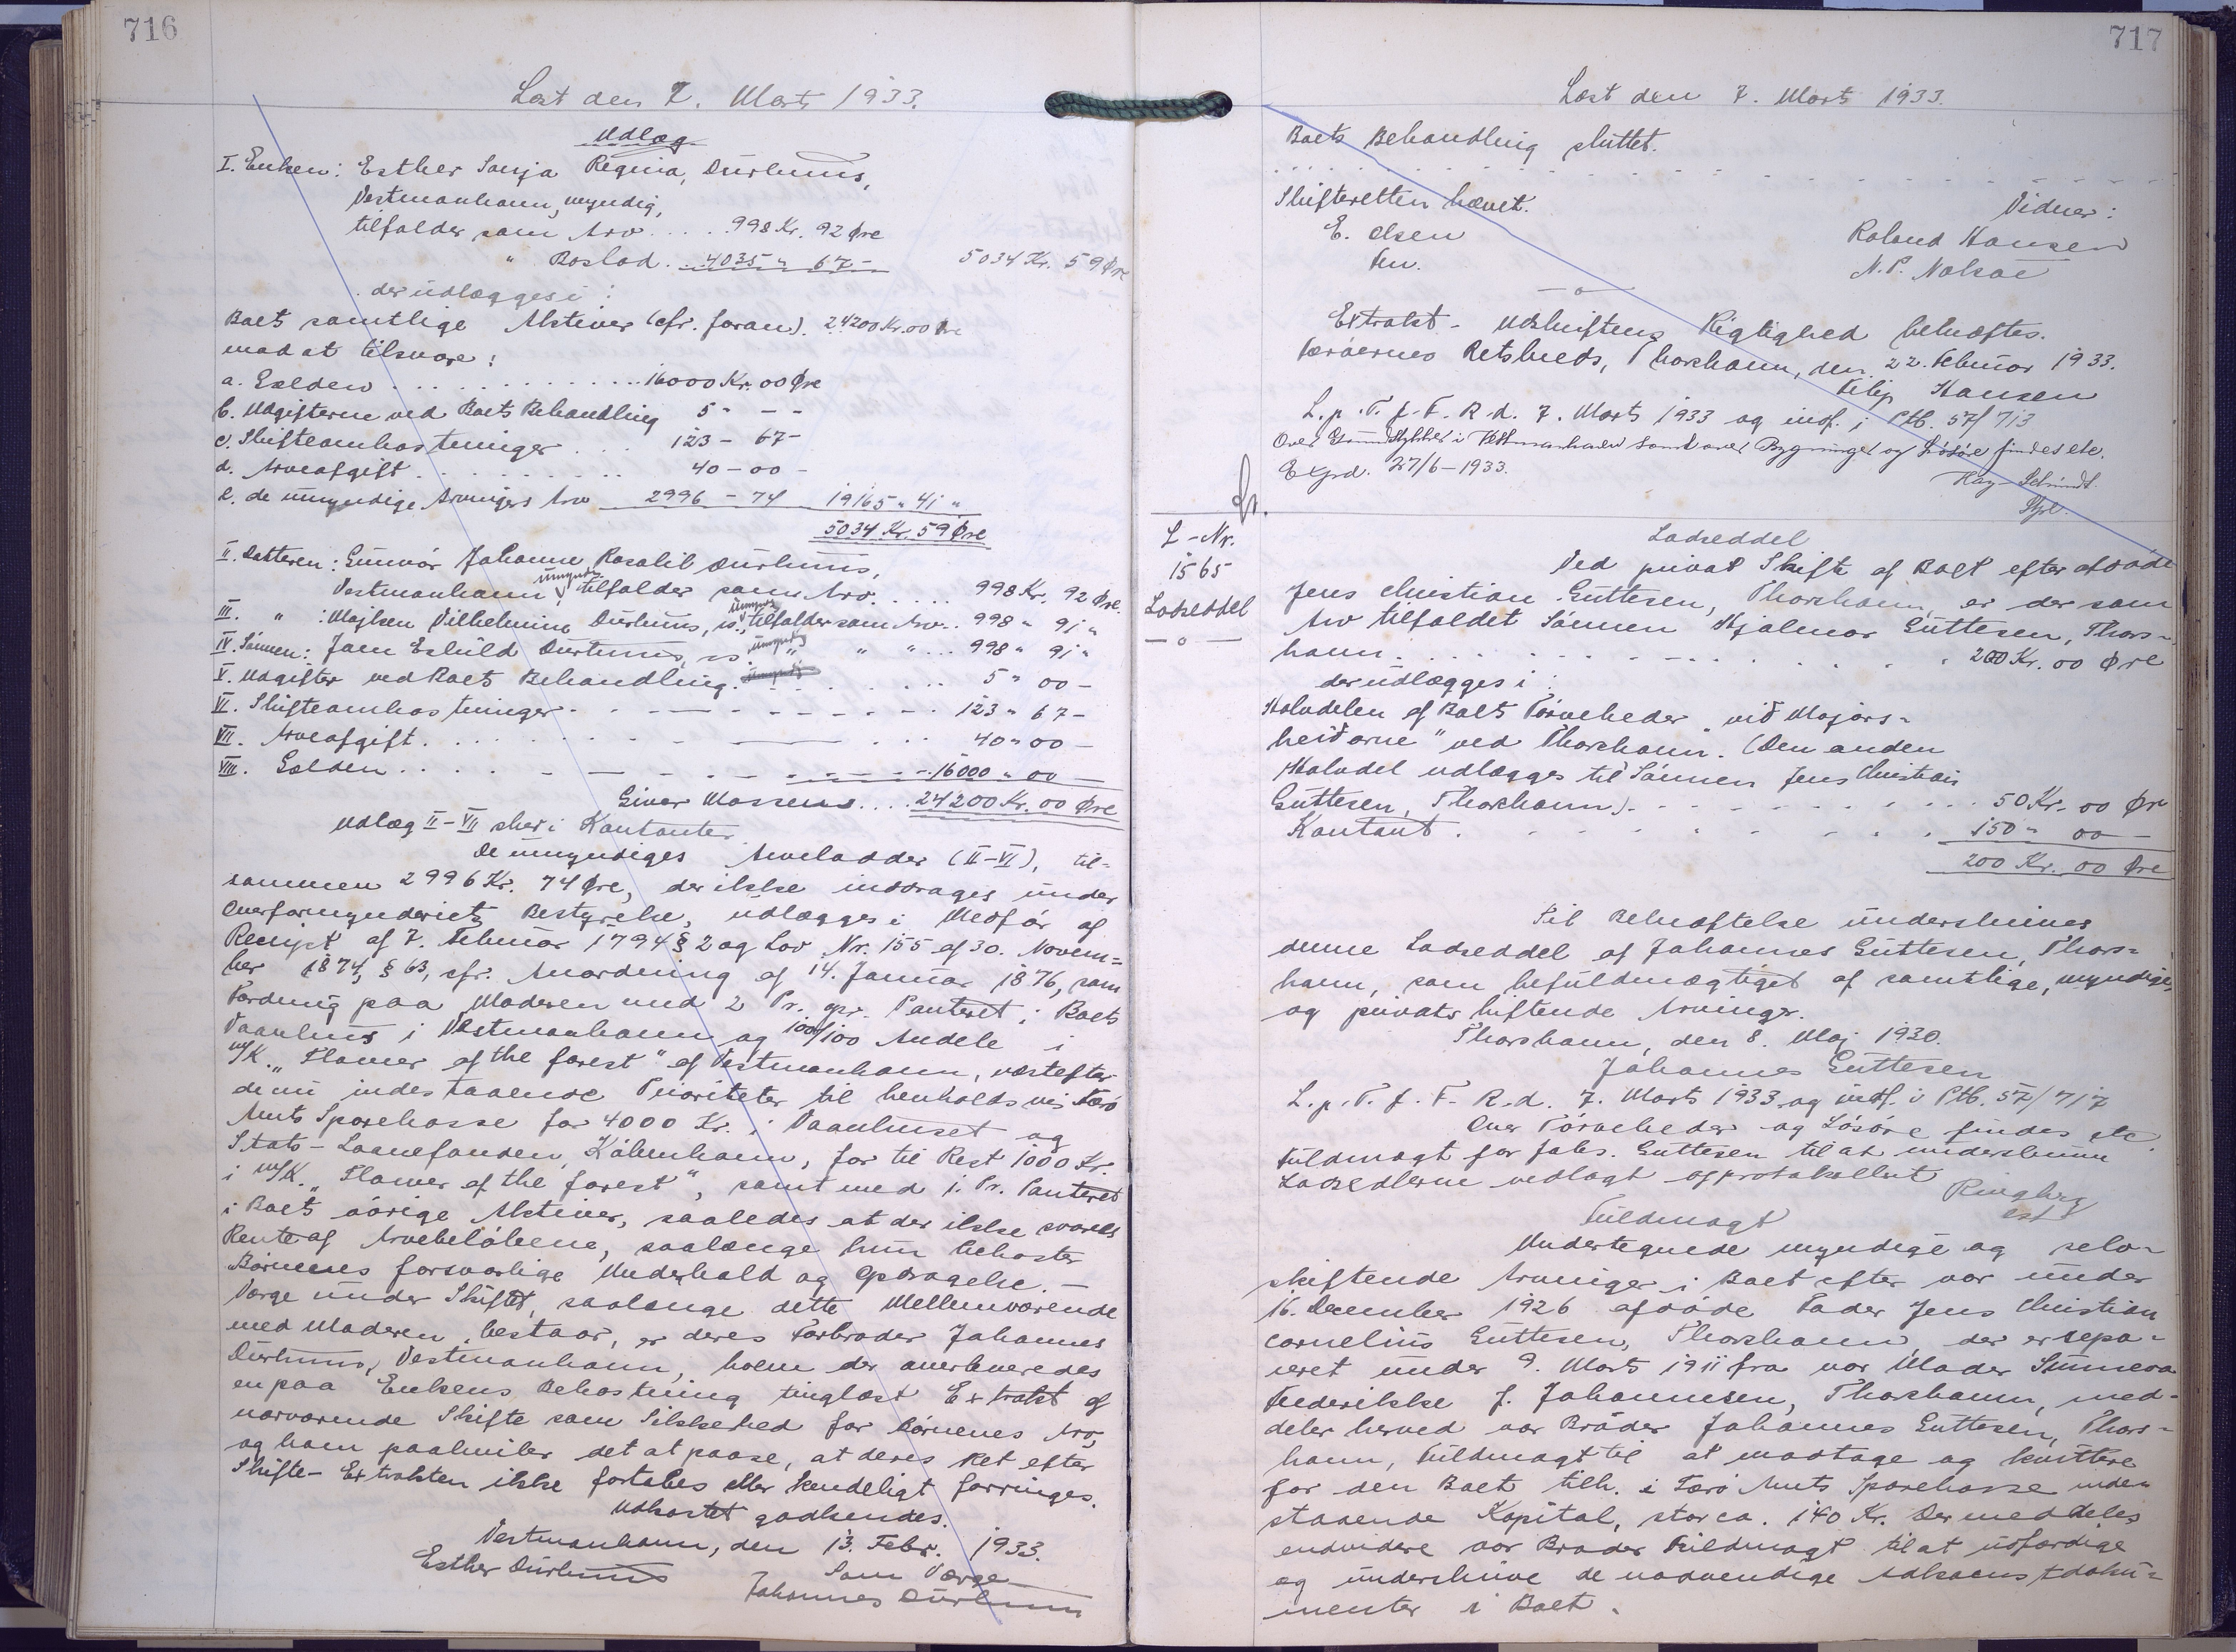 716
Læst den 7. Marts 1933.
Udlæg
I. Enken: Esther Sanja Regina Durhuus,
Vestmanhavn, myndig,
tilfalder som Arv .... 998 Kr. 92 Øre
" Boslod .. 4035 " 67 - 5034 Kr. 59 Øre
der udlægges i:
Boets samtlige Aktiver (cfr. foran). 24200 Kr. 00 Øre
mod at tilsvare:
a. Gælden ............ 16000 Kr. 00 Øre
b. Udgifterne ved Boets Behandling 5 " - -
c. Skifteomkostninger ... 123 - 67 -
d. Arveafgift ......... 40 - 00 -
e. de umyndige Arvingers Arv 2996 - 74 19165 " 41 "
5034 Kr. 59 Øre
II. Datteren: Gunvör Johanne Rosalil Durhuus,
Vestmanhavn, umyndig, tilfalder som Arv ..... 998 Kr. 92 Øre.
III. " : Majken Vilhelmine Durhuus, is., umyndig, tilfalder som Arv .. 998 " 91 "
IV. Sönnen: Jørn Eskild Durhuus, is. umyndig " " " ... 998 " 91 "
V. Udgifter ved Boets Behandling. ....... 5 " 00 -
VI. Skifteomkostninger ........ 123 " 67 -
VII. Arveafgift ........ 40 " 00 -
VIII. Gælden ........ 16000 " 00 -
Giver Massens .... 24200 Kr. 00 Øre
Udlæg II-VII sker i Kontanter.
De umyndiges Arvelodder (II-VI), til-
sammen 2996 Kr. 74 Øre, der ikke inddrages under
Overformynderiets Bestyrelse, udlægges i Medför af
Reskript af 7. Februar 1794 § 2 og Lov Nr. 155 af 30. Novem-
ber 1874, § 63, cfr. Anordning af 14. Januar 1876, som
Fordring paa Moderen med 2 Pr. opr. Panteret i Boets
Vaanhus i Vestmanhavn og 100/100 Andele i
m/K. "Flower of the forest" af Vestmanhavn, næstefter
de nu indestaaende Prioriteter til henholdsvis Færö
Amts Sparekasse for 4000 Kr. i Vaanhuset og
Stats-Laanefonden, Köbenhavn, for til Rest 1000 Kr.
i m/K. "Flower of the forest", samt med 1. Pr. Panteret
i Boets övrige Aktiver, saaledes at der ikke svares
Rente af Arvebelöbene, saalænge hun bekoster
Börnenes forsvarlige Underhold og Opdragelse. -
Værge under Skiftet, saalænge dette Mellemværende
med Moderen bestaar, er deres Farbroder Johannes
Durhuus, Vestmanhavn, hvem der overleveredes
en paa Enkens Bekostning tinglæst Extrakt af
nærværende Skifte som Sikkerhed for Börnenes Arv,
og ham paahviler det at paase, at deres Ret efter
Skifte-Extrakten ikke fortabes eller kendeligt forringes.
Udkastet godkendes.
Vestmanhavn, den 13. Febr. 1933.
Esther Durhuus Som Værge
Johannes Durhuus
717
Læst den 7. Marts 1933.
Boets Behandling sluttet.
Skifteretten hævet.
Vidner:
E. Olsen Roland Hansen
fm. N. P. Nolsøe
Extrakt-Udskriftens Rigtighed bekræftes.
Færöernes Retskreds, Thorshavn, den 22. Februar 1933.
Filip Hansen
L. p. T. f. F. R. d. 7. Marts 1933 og indf. i Ptb. 57/713
Over Grundstykker i Vestmanhavn samt over Bygninger og Lösöre findes etc.
Expd. 27/6-1933.
Kay Schmidt.
Styrl.
fr.
L-Nr.
1565
Lodseddel
Lodseddel
Ved privat Skifte af Boet efter afdöde
Jens Christian Guttesen, Thorshavn, er der som
Arv tilfaldet Sönnen Hjalmar Guttesen, Thors-
havn ........ 200 Kr. 00 Øre
der udlægges i:
Halvdelen af Boets Törveheder "við Majors-
heiðarne" ved Thorshavn. (Den anden
Halvdel udlægges til Sönnen Jens Christian
Guttesen, Thorshavn). ........ 50 Kr. 00 Øre
Kontant ........ 150 " 00 -
200 Kr. 00 Øre
Til Bekræftelse underskrives
denne Lodseddel af Johannes Guttesen, Thors-
havn, som befuldmægtiget af samtlige, myndige,
og privatskiftende Arvinger.
Thorshavn, den 8. Maj 1930.
Johannes Guttesen
L. p. T. f. F. R. d. 7. Marts 1933 og indf. i Ptb. 57/717
Over Törveheder og Lösöre findes etc.
Fuldmagt for Johs. Guttesen til at underskrive
Lodsedlerne vedlagt og protokolleret
Ringberg
cst
Fuldmagt
Undertegnede myndige og selv-
skiftende Arvinger i Boet efter vor under
16. December 1926 afdöde Fader Jens Christian
Cornelius Guttesen, Thorshavn, der er sepa-
reret under 9. Marts 1911 fra vor Moder Sunneva
Frederikke f. Johannesen, Thorshavn, med-
deler herved vor Bröder Johannes Guttesen, Thors-
havn, Fuldmagt til at modtage og kvittere
for den Boet tilh. i Færö Amts Sparekasse inde-
staaende Kapital, stor ca. 140 Kr. Der meddeles
endvidere vor Broder Fuldmagt til at udfærdige
og underskrive de nødvendige Adkomstdoku-
menter i Boet.